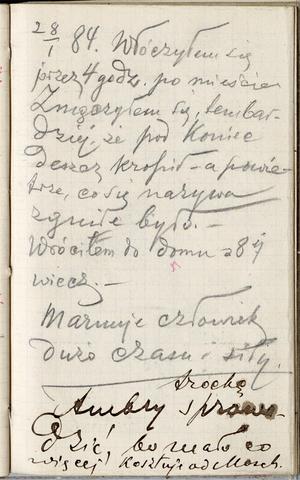 28/1 84. Włóczyłem się
przez 4 godz. po mieście
Zmęczyłem się, tembar-
dziej, że pod koniec
deszcz kropił – a powie-
trze, co się nazywa
zgniłe było. –
Wróciłem do domu o 8ej
wiecz. –
Marnuje człowiek
dużo czasu i siły.
trochę
Ambry sprowa-
dzić, bo mało co
więcej kosztuje od Mosch.